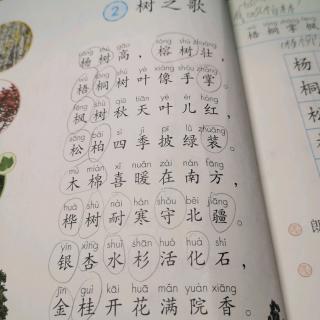 ② 树之歌
yáng shù gāo róng shù zhuàng
杨树高，榕树壮，
wú tóng shù yè xiàng shǒu zhǎng
梧桐树叶像手掌。
fēng shù qiū tiān yè ér hóng
枫树秋天叶儿红，
sōng bǎi sì jì pī lǜ zhuāng
松柏四季披绿装。
mù mián xǐ nuǎn zài nán fāng
木棉喜暖在南方，
huà shù nài hán shǒu běi jiāng
桦树耐寒守北疆。
yín xìng shuǐ shān huó huà shí
银杏水杉活化石，
jīn guì kāi huā mǎn yuàn xiāng
金桂开花满院香。
梧桐掌枫
杨
桐
松
朗